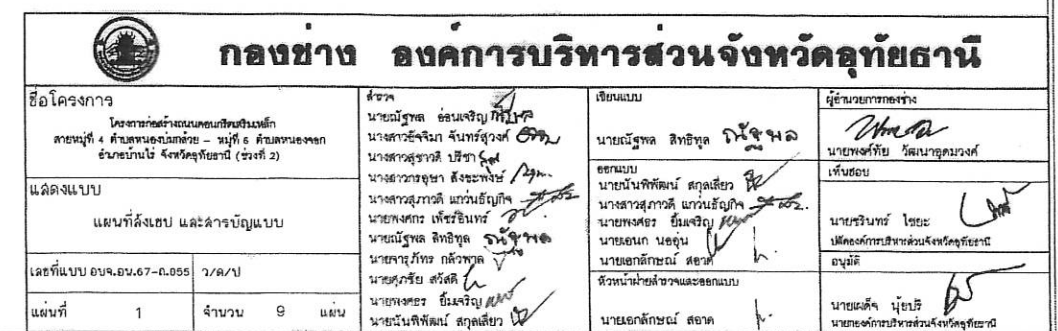 กองช่าง องค์การบริหารส่วนจังหวัดอุทัยธานี
ชื่อโครงการ
โครงการก่อสร้างถนนคอนกรีตเสริมเหล็ก
สายหมู่ที่ 4 ตำบลหนองบ่มกล้วย - หมู่ที่ 6 ตำบลหนองจอก
อำเภอบ้านไร่ จังหวัดอุทัยธานี (ช่วงที่ 2)
แสดงแบบ
แผนที่สังเขป และสารบัญแบบ
เลขที่แบบ อบจ.อน.67-ถ.055 ว/ด/ป
แผ่นที่ 1 จำนวน 9 แผ่น
สำรวจ
นายณัฐพล อ่อนเจริญ
นางสาวอัจจิมา จันทร์สุวงค์
นางสาวสุชาวดี ปรีชา
นางสาวกรอุษา สังขะพงษ์
นางสาวสุภาวดี แก่วนธัญกิจ
นายพงศกร เพ็ชรอินทร์
นายณัฐพล สิทธิทูล ณัฐพล
นายจารุภัทร กลัวพาล
นายศุภชัย สวัสดี
นายพงศธร ยิ้มเจริญ
นายนันพิพัฒน์ สกุลเสี่ยว
เขียนแบบ
นายณัฐพล สิทธิทูล ณัฐพล
ออกแบบ
นายนันพิพัฒน์ สกุลเสี่ยว
นางสาวสุภาวดี แก่วนธัญกิจ
นายพงศธร ยิ้มเจริญ
นายเอนก นออุ่น
นายเอกลักษณ์ สอาด
หัวหน้าฝ่ายสำรวจและออกแบบ
นายเอกลักษณ์ สอาด
ผู้อำนวยการกองช่าง
นายพงศ์ทัย วัฒนาอุดมวงศ์
เห็นชอบ
นายชรินทร์ ไชยะ
ปลัดองค์การบริหารส่วนจังหวัดอุทัยธานี
อนุมัติ
นายเผด็จ นุ้ยปรี
นายกองค์การบริหารส่วนจังหวัดอุทัยธานี